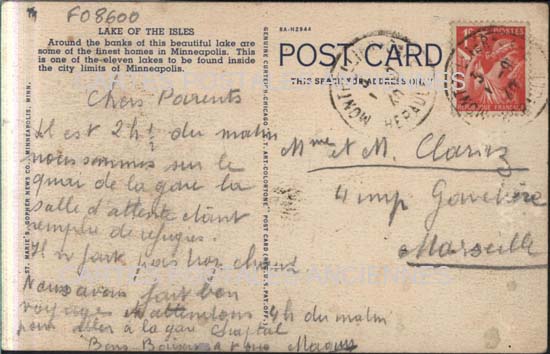 FO8600
LAKE OF THE ISLES
Around the banks of this beautiful lake are
some of the finest homes in Minneapolis. This
is one of the eleven lakes to be found inside
the city limits of Minneapolis.
8A-H2944
POST CARD
THIS SPACE FOR ADDRESS ONLY
GENUINE CURTEICH-CHICAGO "C.T. ART-COLORTONE" POST CARD (REG. U.S. PAT. OFF.)
ST. MARIE'S GOPHER NEWS CO., MINNEAPOLIS, MINN.
Chers Parents
Il est 2h du matin
nous sommes sur le
quai de la gare la
salle d'attente étant
rempre de refugies.
Il n fait pas trop chaud
Nous avons fait bon
voyage attendons 4h du matin
pour aller à la gare
Bons Baisers a tous
Mme et M.
4 imp
Marseille
HERAULT
POSTES
CARTES POSTALES ANCIENNES